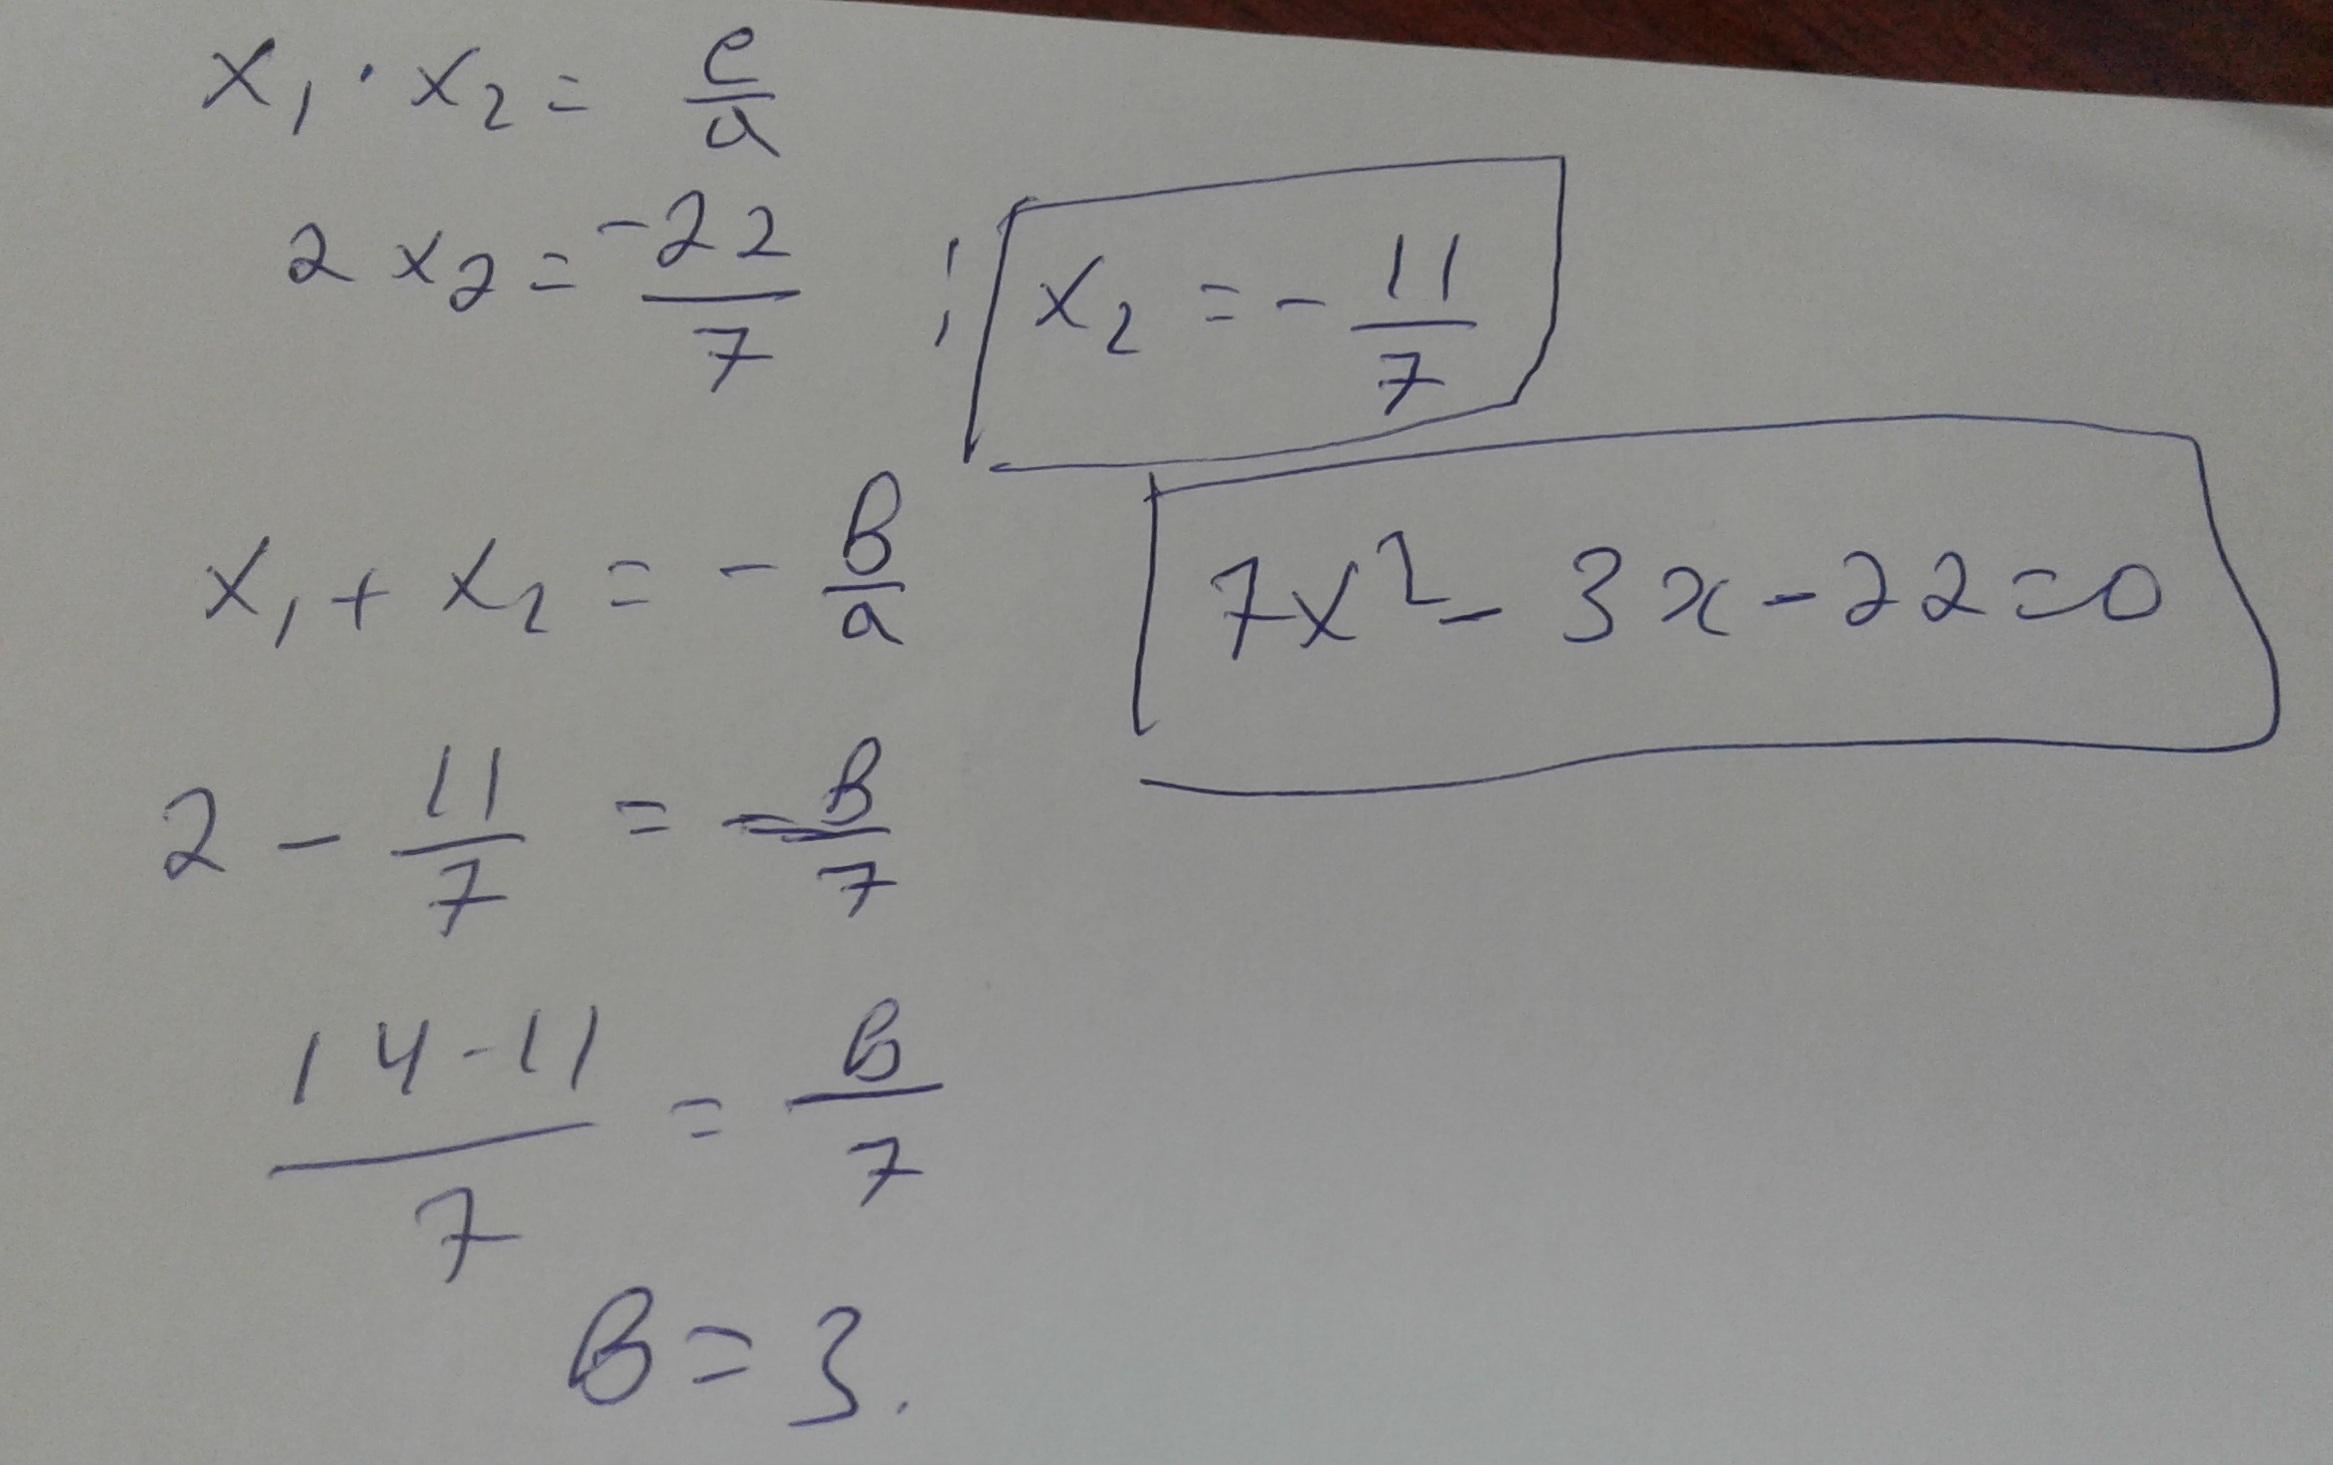 x₁ · x₂ = c/a
2x₂ = -22/7 ; x₂ = - 11/7
x₁ + x₂ = - B/a
7x² - 3x - 22 = 0
2 - 11/7 = - B/7
14-11/7 = B/7
B = 3.